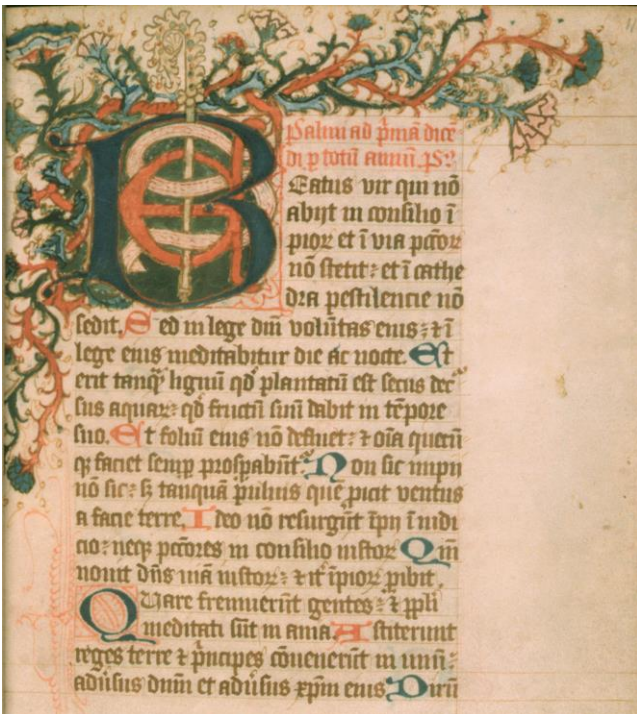 Psalmi ad p̄mā dicē
di p totū annū. ps:
Beatus vir qui nō
abijt in consilio ī
pioꝝ et ī via pctōꝝ
nō stetit: et ī cathe
dra pestilencie nō
sedit. Sed in lege dnī volūtas eius: ⁊ ī
lege eius meditabitur die ac nocte. Et
erit tanqͣ lignū qd̄ plantatū est secus dec̄
sus aquaꝝ: qd̄ fructū suū dabit in tēpore
suo. Et foliū eius nō defluet: ⁊ oīa quecū
qꝫ faciet semꝑ prosꝑabūt. Non sic impii
nō sic: sꝫ tanquā pulius quē ꝓicit ventus
a facie terre. Ideo nō resurgūt īpij ī iudi
cio: neqꝫ pctōres in consilio iustoꝝ Qm̄
nouit dn̄s viā iustoꝝ: ⁊ it̄ īpioꝝ ꝑibit.
Quare fremuerūt gentes: ⁊ ppli
meditati sūt inania. Astiterunt
reges terre ⁊ p̄ncipes cōuenerūt in unū:
adūsus dnm̄ et adūsus xp̄m eius Dirū